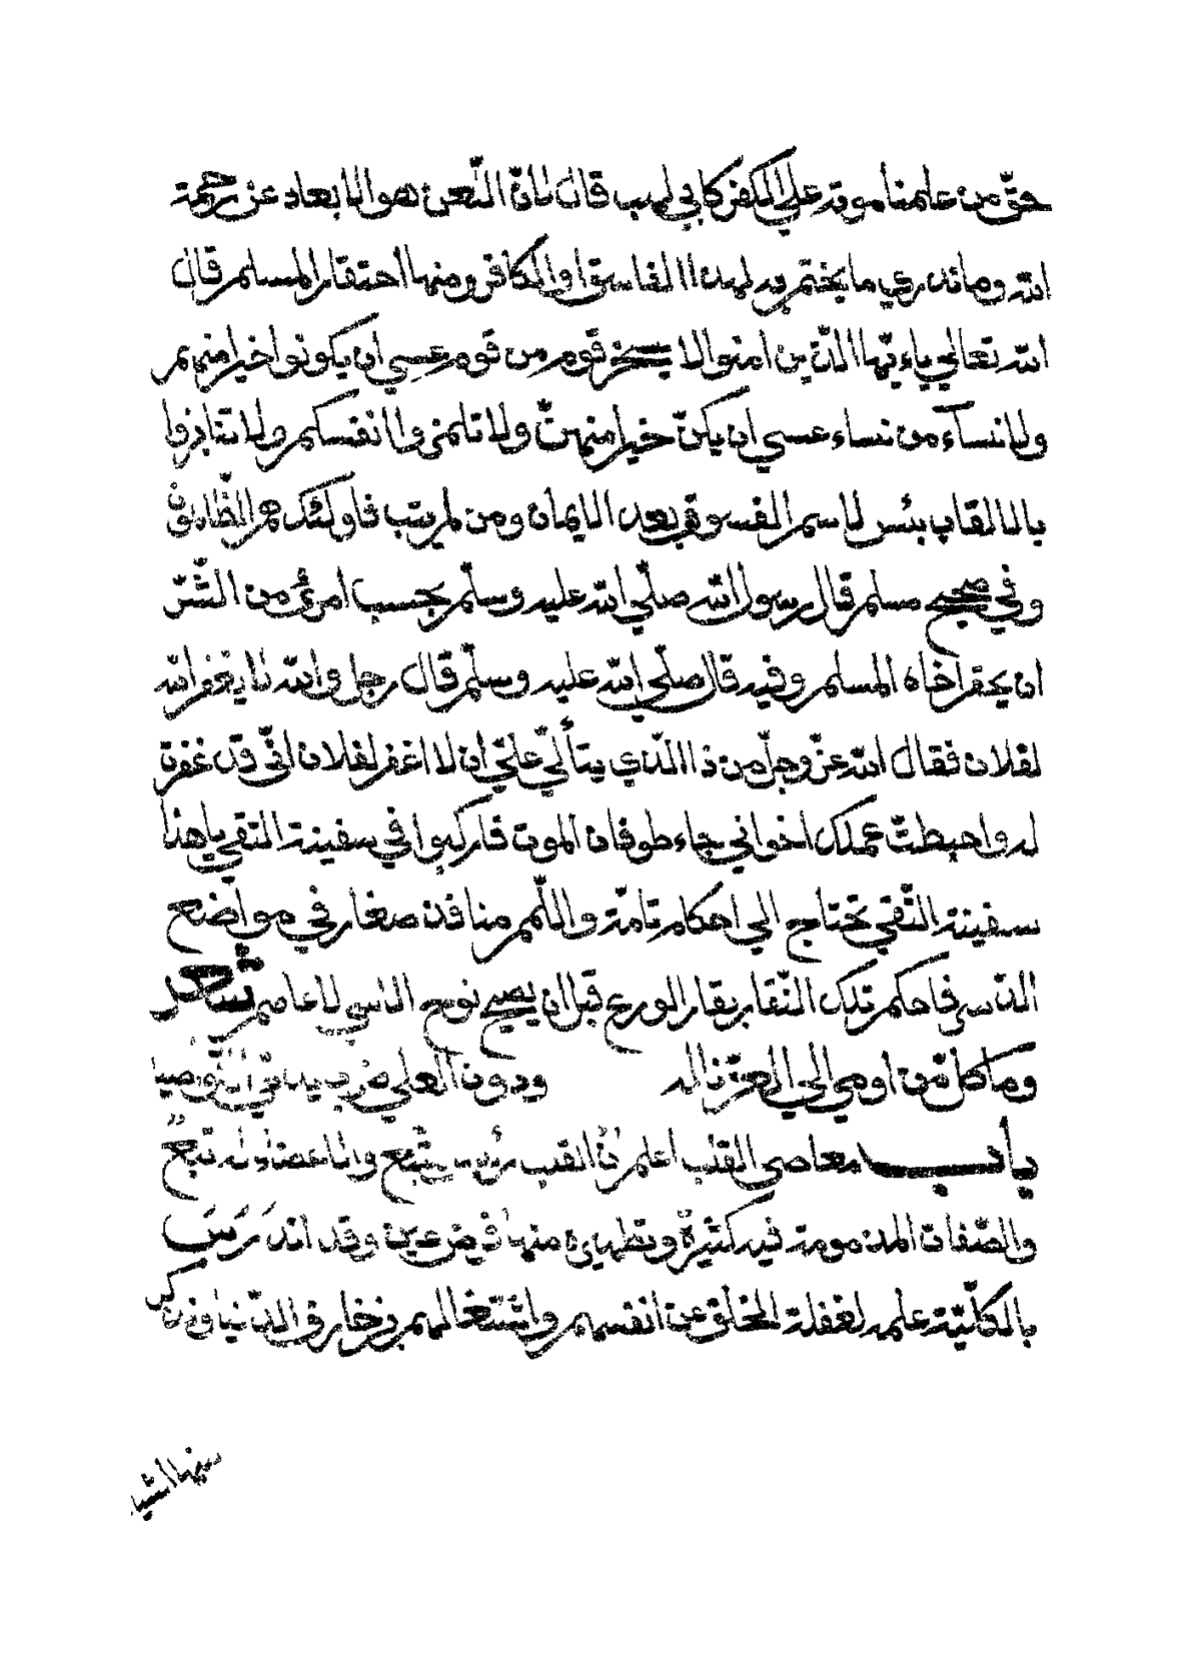 حقّ من علمنا موته علي الكفر كابي لهب قال لانّ اللّعن هو الابعاد عن رحمة
الله وما ندري ما يختم به لهذا الفاسق او الكافر ومنها احتقار المسلم قال
الله تعالي ياءيّها الذّين امنوا لا يسخر قوم من قوم عسي ان يكونوا خيرا منهم
ولا نسآء من نساء عسي ان يكنّ خيرا منهنّ ولا تلمزوا انفسكم ولا تنابزوا
بالالقاب بئس لاسم الفسوق بعد الايمان ومن لم يتب فاولئك هم الظّالمون
وفي صحيح مسلم قال رسول الله صلّي الله عليه وسلّم بحسب امرئ من الشّرّ
ان يحقر اخاه المسلم وفيه قال صلّي الله عليه وسلّم قال رجل والله لا يغفر الله
لفلان فقال الله عزّ وجلّ من ذا الذّي يتألّي عليّ ان لا اغفر لفلان انّي قد غفرت
له واحبطتّ عملك اخواني جاء طوفان الموت فاركبوا في سفينة التقي ياهذا
سفينة التّقي تحتاج الي احكام تامّة واللّمم منافذ صغار في مواضع
الدّسر فاحكم تلك النّقابر بقار الورع قبل ان يصيح نوح الناسي لا عاصم شعر
وما كل من اومي الي العزّ ناله ودون العلي ضرب
باب معاصي القلب اعلم انّ القلب رئيس يتّبع والاعضاء له تبعٌ
والصّفات المذمومة فيه كثيرةٌ وتطهيره منها فرض عين وقد اندرس
بالكليّة علمه لغفلة الخلق عن انفسهم واشتغالهم بزخارف الدّنيا وذكر